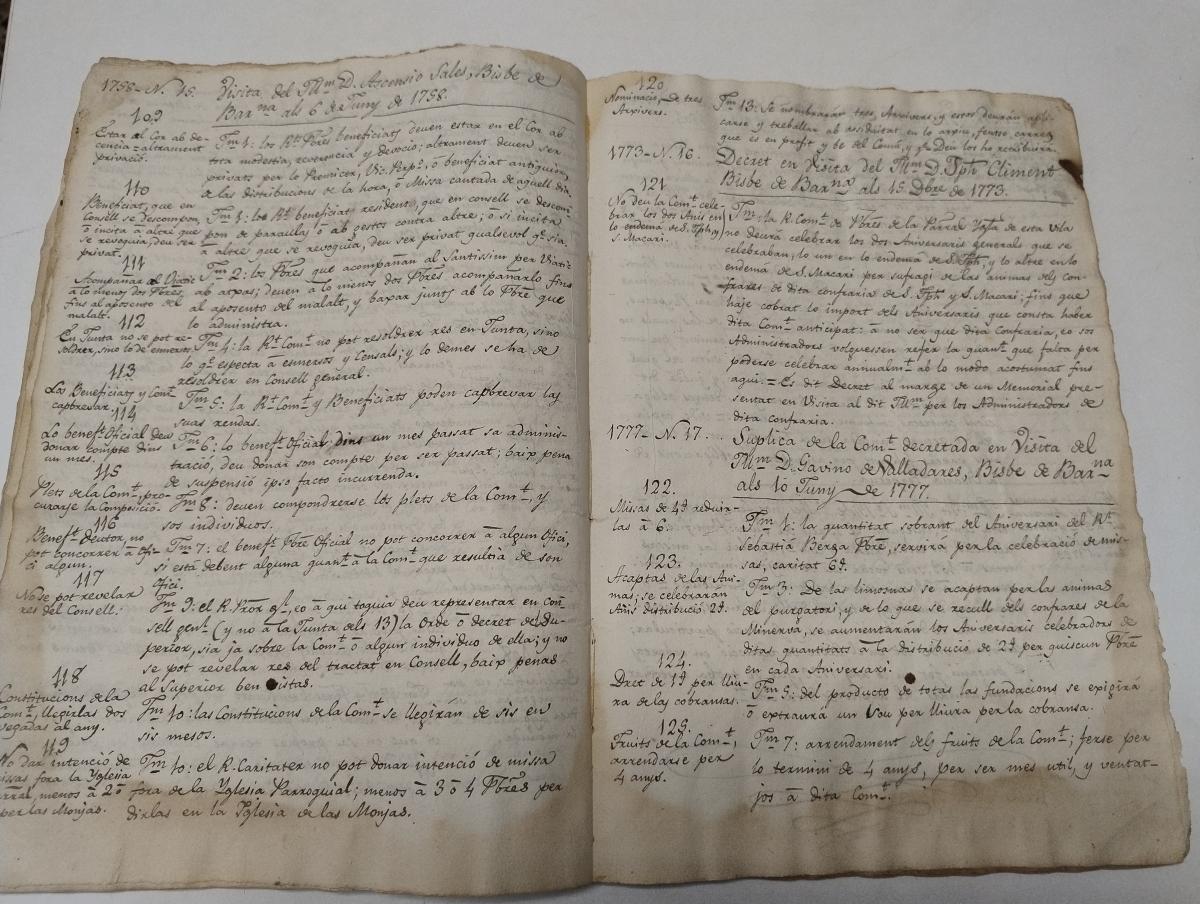 1758 - N. 15. Visita del Illm. D. Ascensio Sales, Bisbe de
Barna. als 6 de Juny de 1758.
109
Estar al Cor ab de-
cencia = altrament
privació.
Im 1: los Rts. Pbres beneficiats deuen estar en el Cor ab
tota modestia, reverencia y devoció; altrament deuen ser
privats per lo Premicer, Vic. Perpo. ó beneficiat antiguior,
a las distribucions de la hora, ó Missa cantada de aquell dia.
110
Beneficiat, que en
Consell se descompon,
ó incita á altre que
se revoquia, deu ser
privat.
Im 1: lo Rt. beneficiat resident, que en consell se descom-
pon de paraulas, ó ab gestos contra altre; ó si incita
á altre que se revoquia, deu ser privat qualsevol qe. sia.
111
Acompañar al Viatic
á lo menos dos Pbres,
fins al aposento del
malalt.
Im 2: los Pbres que acompañan al Santissim per Viatic
ab atxas; deuen á lo menos dos Pbres acompañarlo fins
al aposento del malalt, y baxar junts ab lo Pbre que
lo administra.
112
En Junta no se pot re-
soldrer, sino lo de esmersos
Im 4: la Rt. Comt. no pot resoldrer res en Junta, sino
lo qe. especta á esmersos y Censals; y lo demes se ha de
resoldrer en Consell general.
113
Los Beneficiats y Comt.
capbrevar.
Im 5: la Rt. Comt. y Beneficiats poden capbrevar las
suas rendas.
114
Lo beneft. Oficial deu
donar compte dins
un mes.
Im 6: lo beneft. Oficial dins un mes passat sa adminis-
tració, deu donar son compte per ser passat; baix pena
de suspensió ipso facto incurrenda.
115
Plets de la Comt., pro-
curarse la Composició.
Im 8: deuen compondrerse los plets de la Comt., y
sos individuos.
116
Beneft. deutor, no
pot concorrer á Ofi-
ci algun.
Im 7: el beneft. Pbre Oficial no pot concorrer á algun Ofici,
si está debent alguna quant. á la Comt. que resultia de son
Ofici.
117
No se pot revelar
res del Consell.
Im 9: el R. Pror. gl., co á qui toquia deu representar en Con-
sell genl. (y no á la Junta dels 13) la Orde ó decret del Su-
perior, sia ja sobre la Comt. ó algun individuo de ella; y no
se pot revelar res del tractat en Consell, baix penas
al Superior ben vistas.
118
Constitucions de la
Comt., llegirlas dos
vegadas al any.
Im 10: las Constitucions de la Comt. se llegirán de sis en
sis mesos.
119
No dar intenció de
missas fora la Yglesia
menos á 2 ó
per las Monjas.
Im 10: el R. Caritater no pot donar intenció de missa
fora de la Yglesia Parroquial; menos á 3 ó 4 Pbres per
dirlas en la Iglesia de las Monjas.
120
Nominació, de tres
Arxivers.
Im 13: Se nombrarán tres, Arxivers, y estos deurán apli-
carse y treballar ab assiduitat en lo arxiu, fentse carrec
que es en profit y be del Comú, y qe. Deu los ho retribuirá.
1773 - N. 16. Decret en Visita del Illm. D. Jph Climent
Bisbe de Barna. als 15 Dbre de 1773.
121
No deu la Comt. cele-
brar los dos Anis. en
lo endema de S. Jph, y
S. Macari.
Im: la R. Comt. de Pbres de la Parral. Ygla. de esta Vila
no deurá celebrar los dos Aniversaris generals que se
celebraban, lo un en lo endema de S. Jph, y lo altre en lo
endema de S. Macari per sufragi de las animas dels Con-
frares de dita confraria de S. Jph y S. Macari: fins que
haje cobrat lo import dels Aniversaris que consta haber
dita Comt. anticipat: á no ser que dita Confraria, co sos
Administradors volguessen refer la quant. que falta per
poderse celebrar annualmt. ab lo modo acostumat fins
aqui. = Es dit Decret al marge de un Memorial pre-
sentat en Visita al dit Illm. per los Administradors de
dita confraria.
1777 - N. 17. Suplica de la Comt. decretada en Visita del
Illm. D. Gavino de Valladares, Bisbe de Barna
als 10 Juny de 1777.
122.
Missas de 4s. reduir-
las á 6.
Im 1: la quantitat sobrant del Aniversari del Rt.
Sebastiá Berga Pbre, servirá per la celebració de mis-
sas, caritat 6s.
123.
Acaptas de las Ani-
mas, se celebrarán
Anis. distribució 2s.
Im 3: De las limosnas se acaptan per las animas
del purgatori, y de lo que se recull dels confrares de la
Minerva, se aumentarán los Aniversaris celebradors de
ditas quantitats á la distribució de 2s. per quiscun Pbre
en cada Aniversari.
124.
Dret de 1s. per lliu-
ra de las cobransas.
Im 5: del producto de totas las fundacions se exigirá
ó extraurá un sou per lliura per la cobransa.
125.
Fruits de la Comt.,
arrendarse per
4 anys.
Im 7: arrendament dels fruits de la Comt.; ferse per
lo termini de 4 anys, per ser mes util, y ventat-
jos á dita Comt.